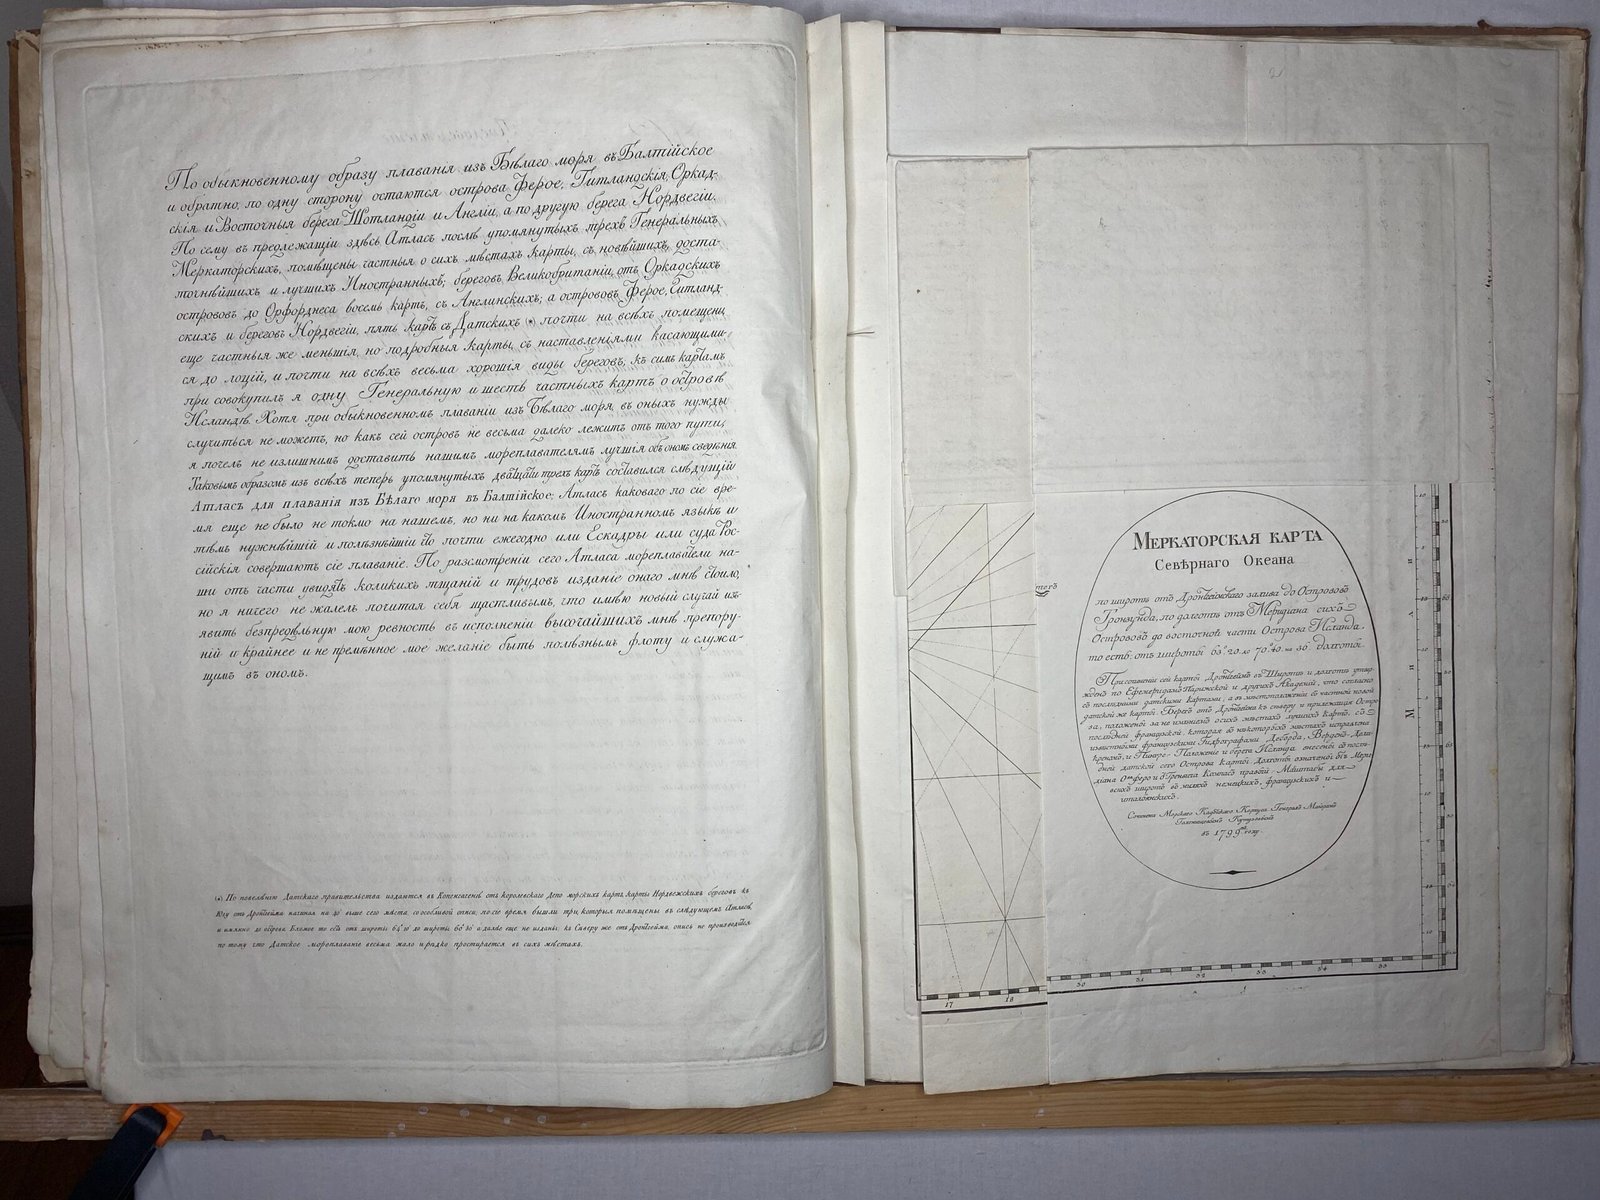 По обыкновенному образу плаванія изъ Бѣлаго моря въ Балтійское
и обратно, по одну сторону остаются острова Ферое, Гитландскія, Оркад-
скія и Восточныя берега Шотландіи и Англіи, а по другую берега Нордвегіи.
По сему въ предлежащіи здѣсь Атласъ послѣ упомянутыхъ трехъ Генеральныхъ
Меркаторскихъ, помѣщены частныя о сихъ мѣстахъ карты, съ новѣйшихъ, доста-
точнѣйшихъ и лучшихъ Иностранныхъ; береговъ Великобританіи, отъ Оркадскихъ
острововъ до Орфорднеса восемь картъ, съ Англинскихъ; а острововъ Ферое, Гитланд-
скихъ и береговъ Нордвегіи, пять картъ съ Датскихъ (*) почти на всѣхъ помещены
еще частныя же меньшія, но подробныя карты, съ наставленіями касающими-
ся до лоціи, и почти на всѣхъ весьма хорошія виды береговъ, къ симъ картамъ
при совокупилъ я одну Генеральную и шесть частныхъ картъ о островѣ
Исландѣ. Хотя при обыкновенномъ плаваніи изъ Бѣлаго моря, въ оныхъ нужды
случиться не можетъ, но какъ сей островъ не весьма далеко лежитъ отъ того пути,
я почелъ не излишнимъ доставить нашимъ мореплавателямъ лучшія объ ономъ сведенія.
Таковымъ образомъ изъ всѣхъ теперь упомянутыхъ двадцати трехъ картъ составился слѣдущій
Атласъ для плаванія изъ Бѣлаго моря въ Балтійское; Атласъ каковаго по сіе вре-
мя еще не было не токмо на нашемъ, но ни на какомъ Иностранномъ языкѣ и
тѣмъ нужнѣйшій и полезнѣйшіи что почти ежегодно или Ескадры или суда Рос-
сійскія совершаютъ сіе плаваніе. По разсмотреніи сего Атласа мореплаватели на-
ши отъ части увидятъ коликихъ тщаній и трудовъ изданіе онаго мнѣ стоило,
но я ничего не жалелъ почитая себя щастливымъ, что имѣю новый случай изъ-
явить безпредѣльную мою ревность въ исполненіи высочайшихъ мнѣ препору-
ній и крайнее и не премѣнное мое желаніе быть полѣзнымъ флоту и служа-
щимъ въ ономъ.
(*) По повелѣнію Датскаго правительства издаются въ Копенгагенѣ отъ королевскаго депо морскихъ картъ карты Нордвежскихъ береговъ къ
Югу отъ Дронтгейма начиная на 40 выше сего мѣста, со особливой описи, по сіе время вышли три, которыя помѣщены въ слѣдующемъ Атласѣ,
и имянно до острова Бломое то есть отъ широты 64° 10' до широты 60° 30' а далѣе еще не изданы; къ Сѣверу же отъ Дронтгейма, опись не производится
по тому что Датское мореплаваніе весьма мало и рѣдко простирается въ сихъ мѣстахъ.
Меркаторская карта
Севѣрнаго Океана
по широтѣ отъ Дронтгеймскаго залива до Острововъ
по далготѣ отъ Меридіана сихъ
Острововъ до восточной части Острова Исланда,
то есть: отъ широты 63° 20' до 70° 40' на 36° долготы.
При сочиненіи сей карты Дронтгеймъ въ Широтѣ и долготѣ утвер-
жденъ по Ефемеридамъ Парижской и другихъ Академій, что согласно
съ последними датскими картами, а въ мѣстоположеніи съ частной новой
датской же карты. Берегъ отъ Дронтгейма къ северу и прилежащія Остро-
ва, положены за не имѣніемъ о сихъ мѣстахъ лучшихъ картъ съ
последней французской, которая въ нѣкоторыхъ мѣстахъ исправлена
извѣстными французскими Гидрографами Деборда, Вердюнъ-Дела-
кренамъ, и Пингре. Положеніе и берега Исланда внесены съ пост-
дней датской сего Острова карты. Долготы означены отъ Мери-
діана О.ва феро и д.Гренвича Компасъ правый. Маштабы для
всѣхъ широтъ въ миляхъ немецкихъ, французскихъ и
италіянскихъ.
Сочинена Морскаго Кадетскаго Корпуса Генералъ Маіоромъ
Голенищевымъ Кутузовымъ
въ 1799м году.
М И Л И
17 18
30 31 32 33 34 35